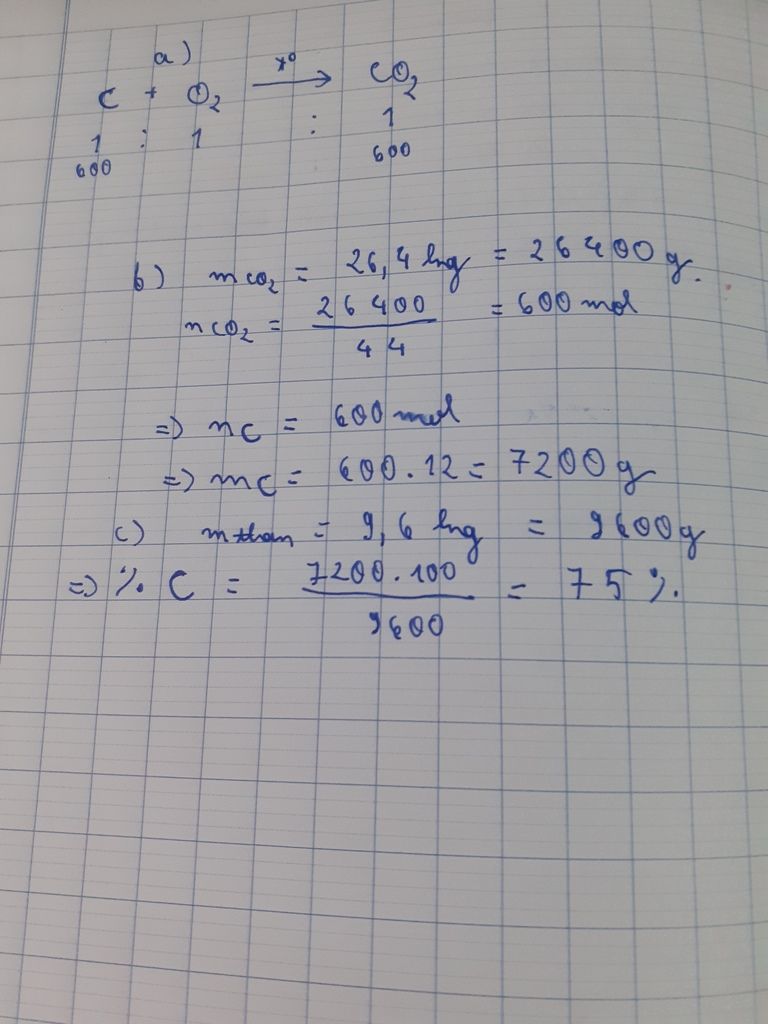 a)
C + O₂ —t⁰→ CO₂
1 : 1 : 1
600 600
b) mCO₂ = 26,4 kg = 26400 g.
nCO₂ = 26400/44 = 600 mol
=> nC = 600 mol
=> mC = 600.12 = 7200 g
c) m than = 9,6 kg = 9600 g
=> % C = 7200.100/9600 = 75 %.